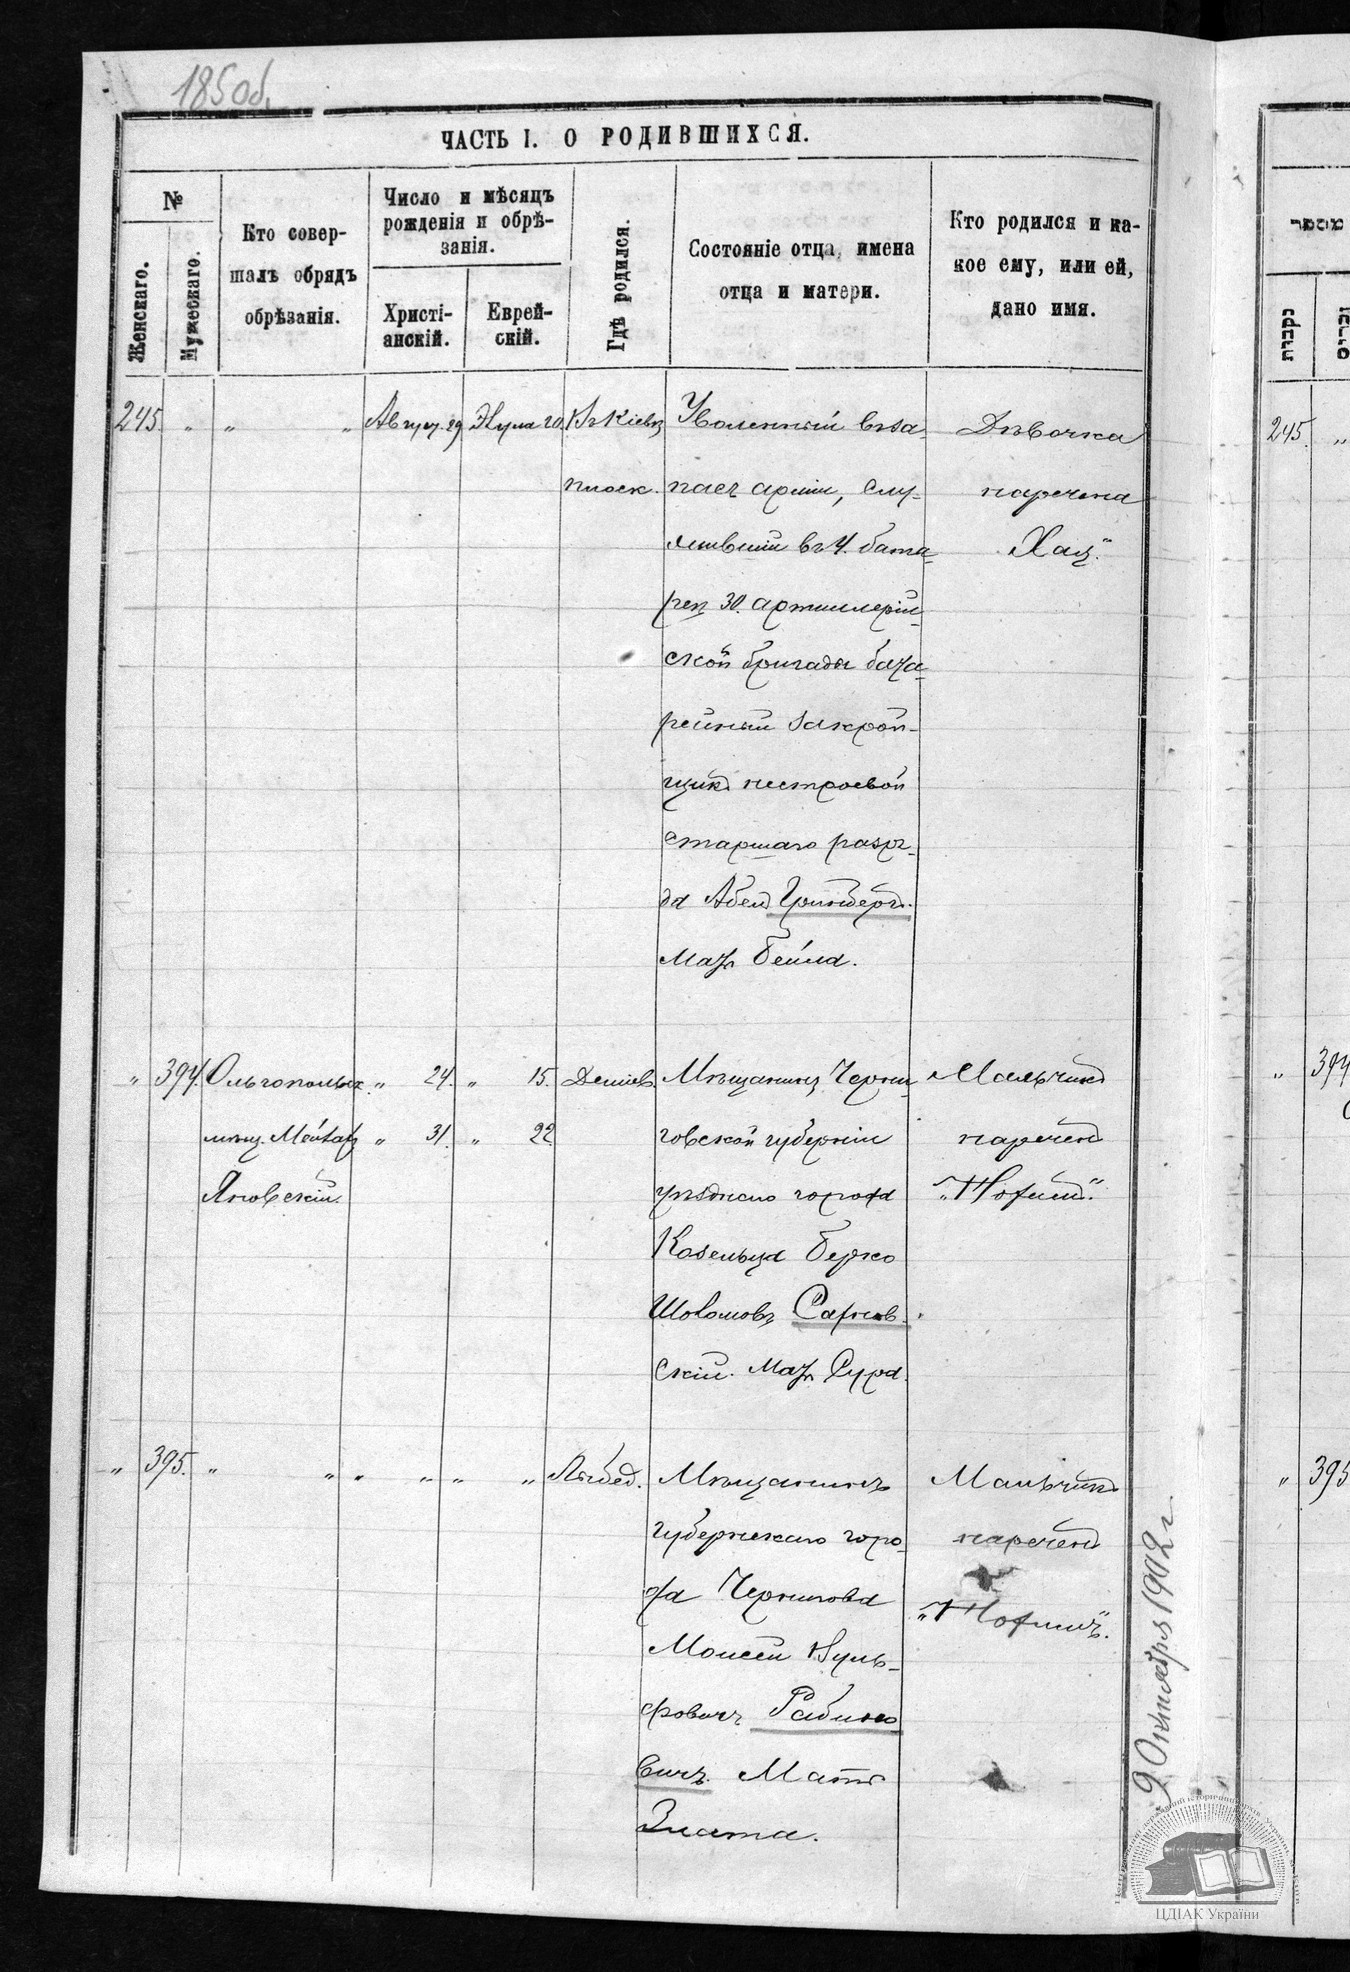 185 об.
ЧАСТЬ I. О РОДИВШИХСЯ.
№
Женскаго.
Мужескаго.
Кто совер-
шалъ обрядъ
обрѣзанія.
Число и мѣсяцъ
рожденія и обрѣ-
занія.
Христі-
анскій.
Еврей-
скій.
Гдѣ родился.
Состояніе отца, имена
отца и матери.
Кто родился и ка-
кое ему, или ей,
дано имя.
245. „ „ „ Август. 29 Элула 20. Въ Кіевѣ
плоск.
Уволенный въ за-
пасъ арміи, слу-
жившій въ 4. бата-
реѣ 30. артиллерій-
ской бригады бата-
рейный закрой-
щикъ нестроевой
старшаго разря-
да Абель Гринбергъ.
Мать Бейла.
Дѣвочка
наречена
„Хая“.
„ 394. Ольгопольск. „ 24. „ 15. Деміев.
мѣщ. „ 31. „ 22
Яновскій.
Мѣщанинъ Черни-
говской губерніи
уѣзднаго города
Козельца Берко
Шоломовъ Сарнов-
скій. Мать Сура.
Мальчикъ
нареченъ
„ 395. „ „ „ „ „ „ Лыбед.
Мѣщанинъ
губернскаго горо-
да Чернигова
Моисей Вуль-
фовичъ Рабино-
вичъ. Мать
Злата.
Мальчикъ
нареченъ
9 Октября 1902 г.
מספר
נקבות
זכרים
245. „
„ 394
„ 395
ЦДІАК України